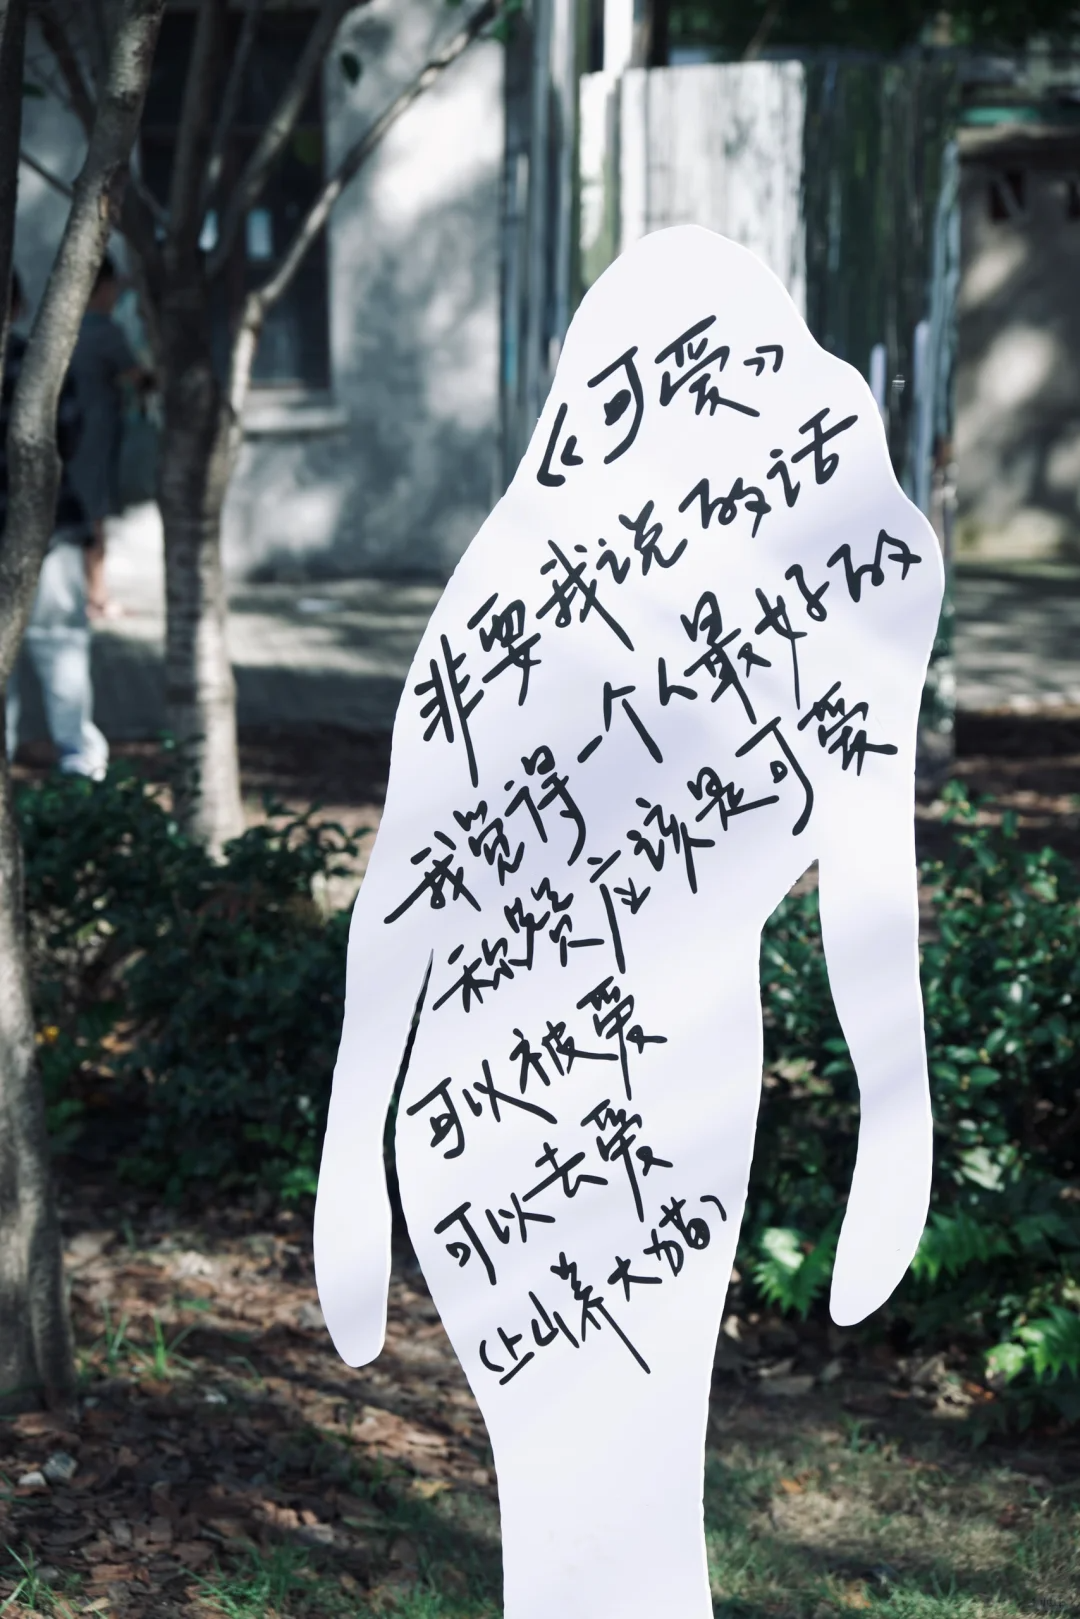 《可爱》
非要我说的话
我觉得一个人最好的
称赞应该是可爱
可以被爱
可以去爱
（上山养大猫）